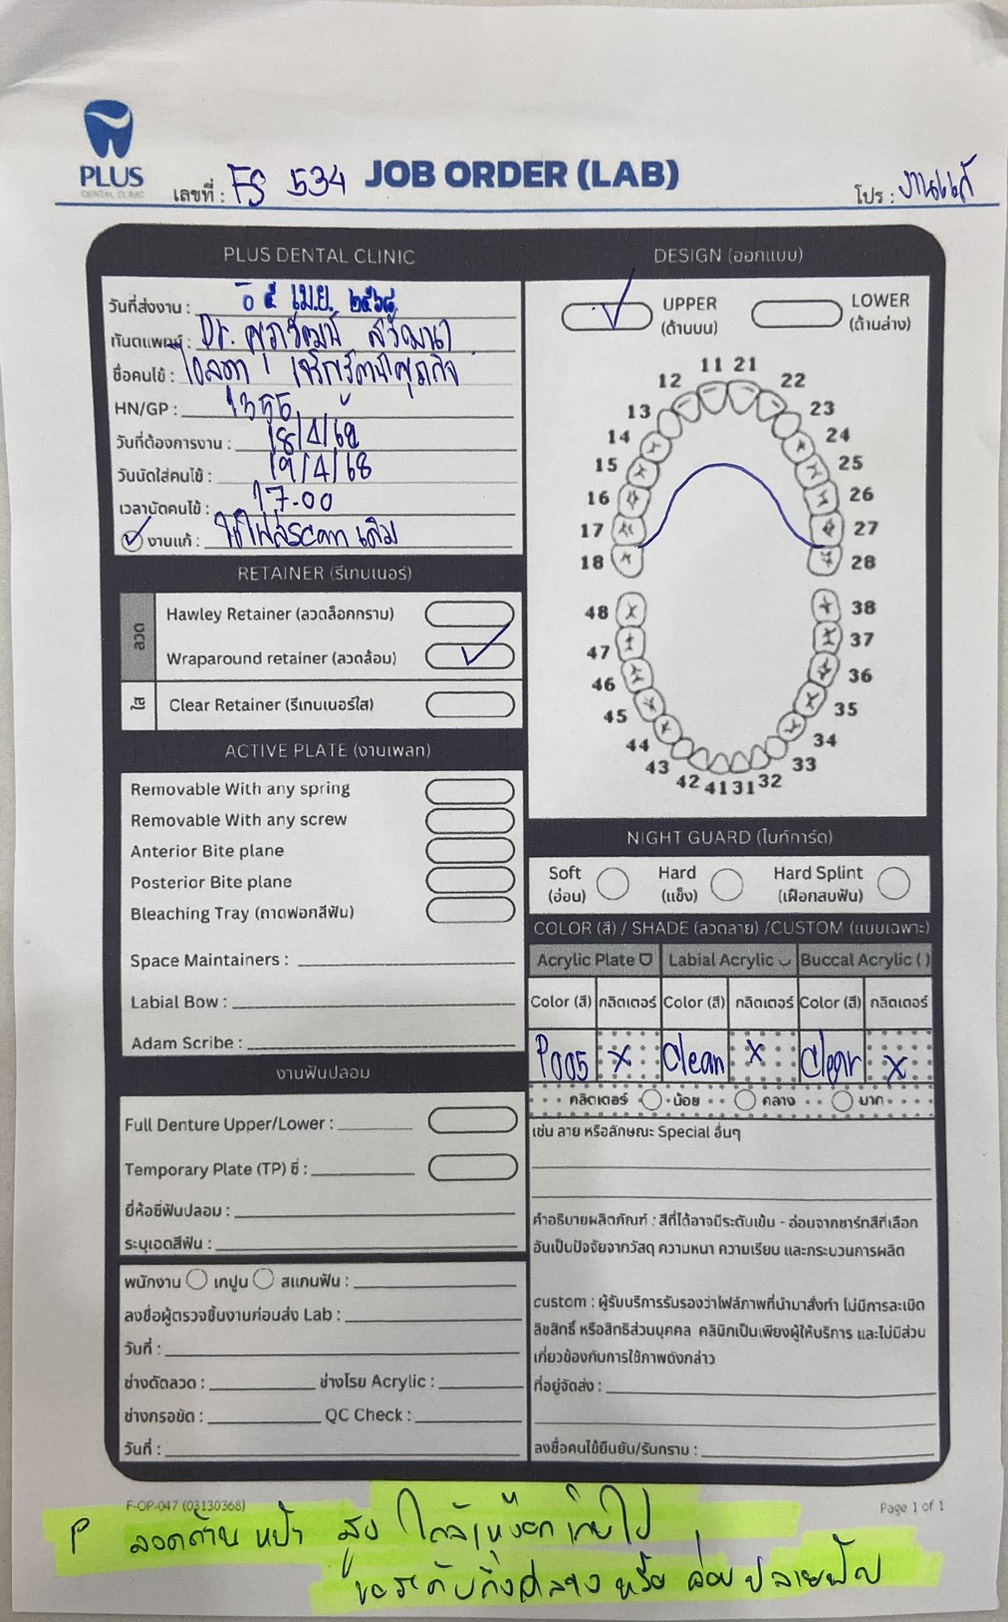 PLUS
DENTAL CLINIC
เลขที่ : FS 534
JOB ORDER (LAB)
โปร : งานแก้
PLUS DENTAL CLINIC
วันที่ส่งงาน : ๕ เม.ย. ๒๕๖๘
ทันตแพทย์ : Dr.
ชื่อคนไข้ :
HN/GP :
วันที่ต้องการงาน : 18/4/68
วันนัดใส่คนไข้ : 19/4/68
เวลานัดคนไข้ : 17.00
งานแก้ : ใช้ไฟล์scan เดิม
RETAINER (รีเทนเนอร์)
ลวด
Hawley Retainer (ลวดล็อกกราม)
Wraparound retainer (ลวดล้อม)
ใส
Clear Retainer (รีเทนเนอร์ใส)
ACTIVE PLATE (งานเพลท)
Removable With any spring
Removable With any screw
Anterior Bite plane
Posterior Bite plane
Bleaching Tray (ถาดฟอกสีฟัน)
Space Maintainers :
Labial Bow :
Adam Scribe :
งานฟันปลอม
Full Denture Upper/Lower :
Temporary Plate (TP) ซี่ :
ยี่ห้อซี่ฟันปลอม :
ระบุเฉดสีฟัน :
พนักงาน เทปูน สแกนฟัน :
ลงชื่อผู้ตรวจชิ้นงานก่อนส่ง Lab :
วันที่ :
ช่างดัดลวด : ช่างโรย Acrylic :
ช่างกรอขัด : QC Check :
วันที่ :
DESIGN (ออกแบบ)
UPPER
(ด้านบน)
LOWER
(ด้านล่าง)
11 21
12 22
13 23
14 24
15 25
16 26
17 27
18 28
48 38
47 37
46 36
45 35
44 34
43 33
42 41 31 32
NIGHT GUARD (ไนท์การ์ด)
Soft
(อ่อน)
Hard
(แข็ง)
Hard Splint
(เฝือกสบฟัน)
COLOR (สี) / SHADE (ลวดลาย) /CUSTOM (แบบเฉพาะ)
Acrylic Plate Labial Acrylic Buccal Acrylic ( )
Color (สี) กลิตเตอร์ Color (สี) กลิตเตอร์ Color (สี) กลิตเตอร์
P005 x Clear x Clear x
กลิตเตอร์ น้อย กลาง มาก
เช่น ลาย หรือลักษณะ Special อื่นๆ
คำอธิบายผลิตภัณฑ์ : สีที่ได้อาจมีระดับเข้ม - อ่อนจากชาร์ทสีที่เลือก
อันเป็นปัจจัยจากวัสดุ ความหนา ความเรียบ และกระบวนการผลิต
custom : ผู้รับบริการรับรองว่าไฟล์ภาพที่นำมาสั่งทำ ไม่มีการละเมิด
ลิขสิทธิ์ หรือสิทธิส่วนบุคคล คลินิกเป็นเพียงผู้ให้บริการ และไม่มีส่วน
เกี่ยวข้องกับการใช้ภาพดังกล่าว
ที่อยู่จัดส่ง :
ลงชื่อคนไข้ยืนยัน/รับทราบ :
F-OP-047 (03130368)
Page 1 of 1
P ลวดด้าน หน้า สูง ใกล้เหงือก เกินไป
ขอระดับกึ่งกลาง หรือ ค่อน ปลายฟัน